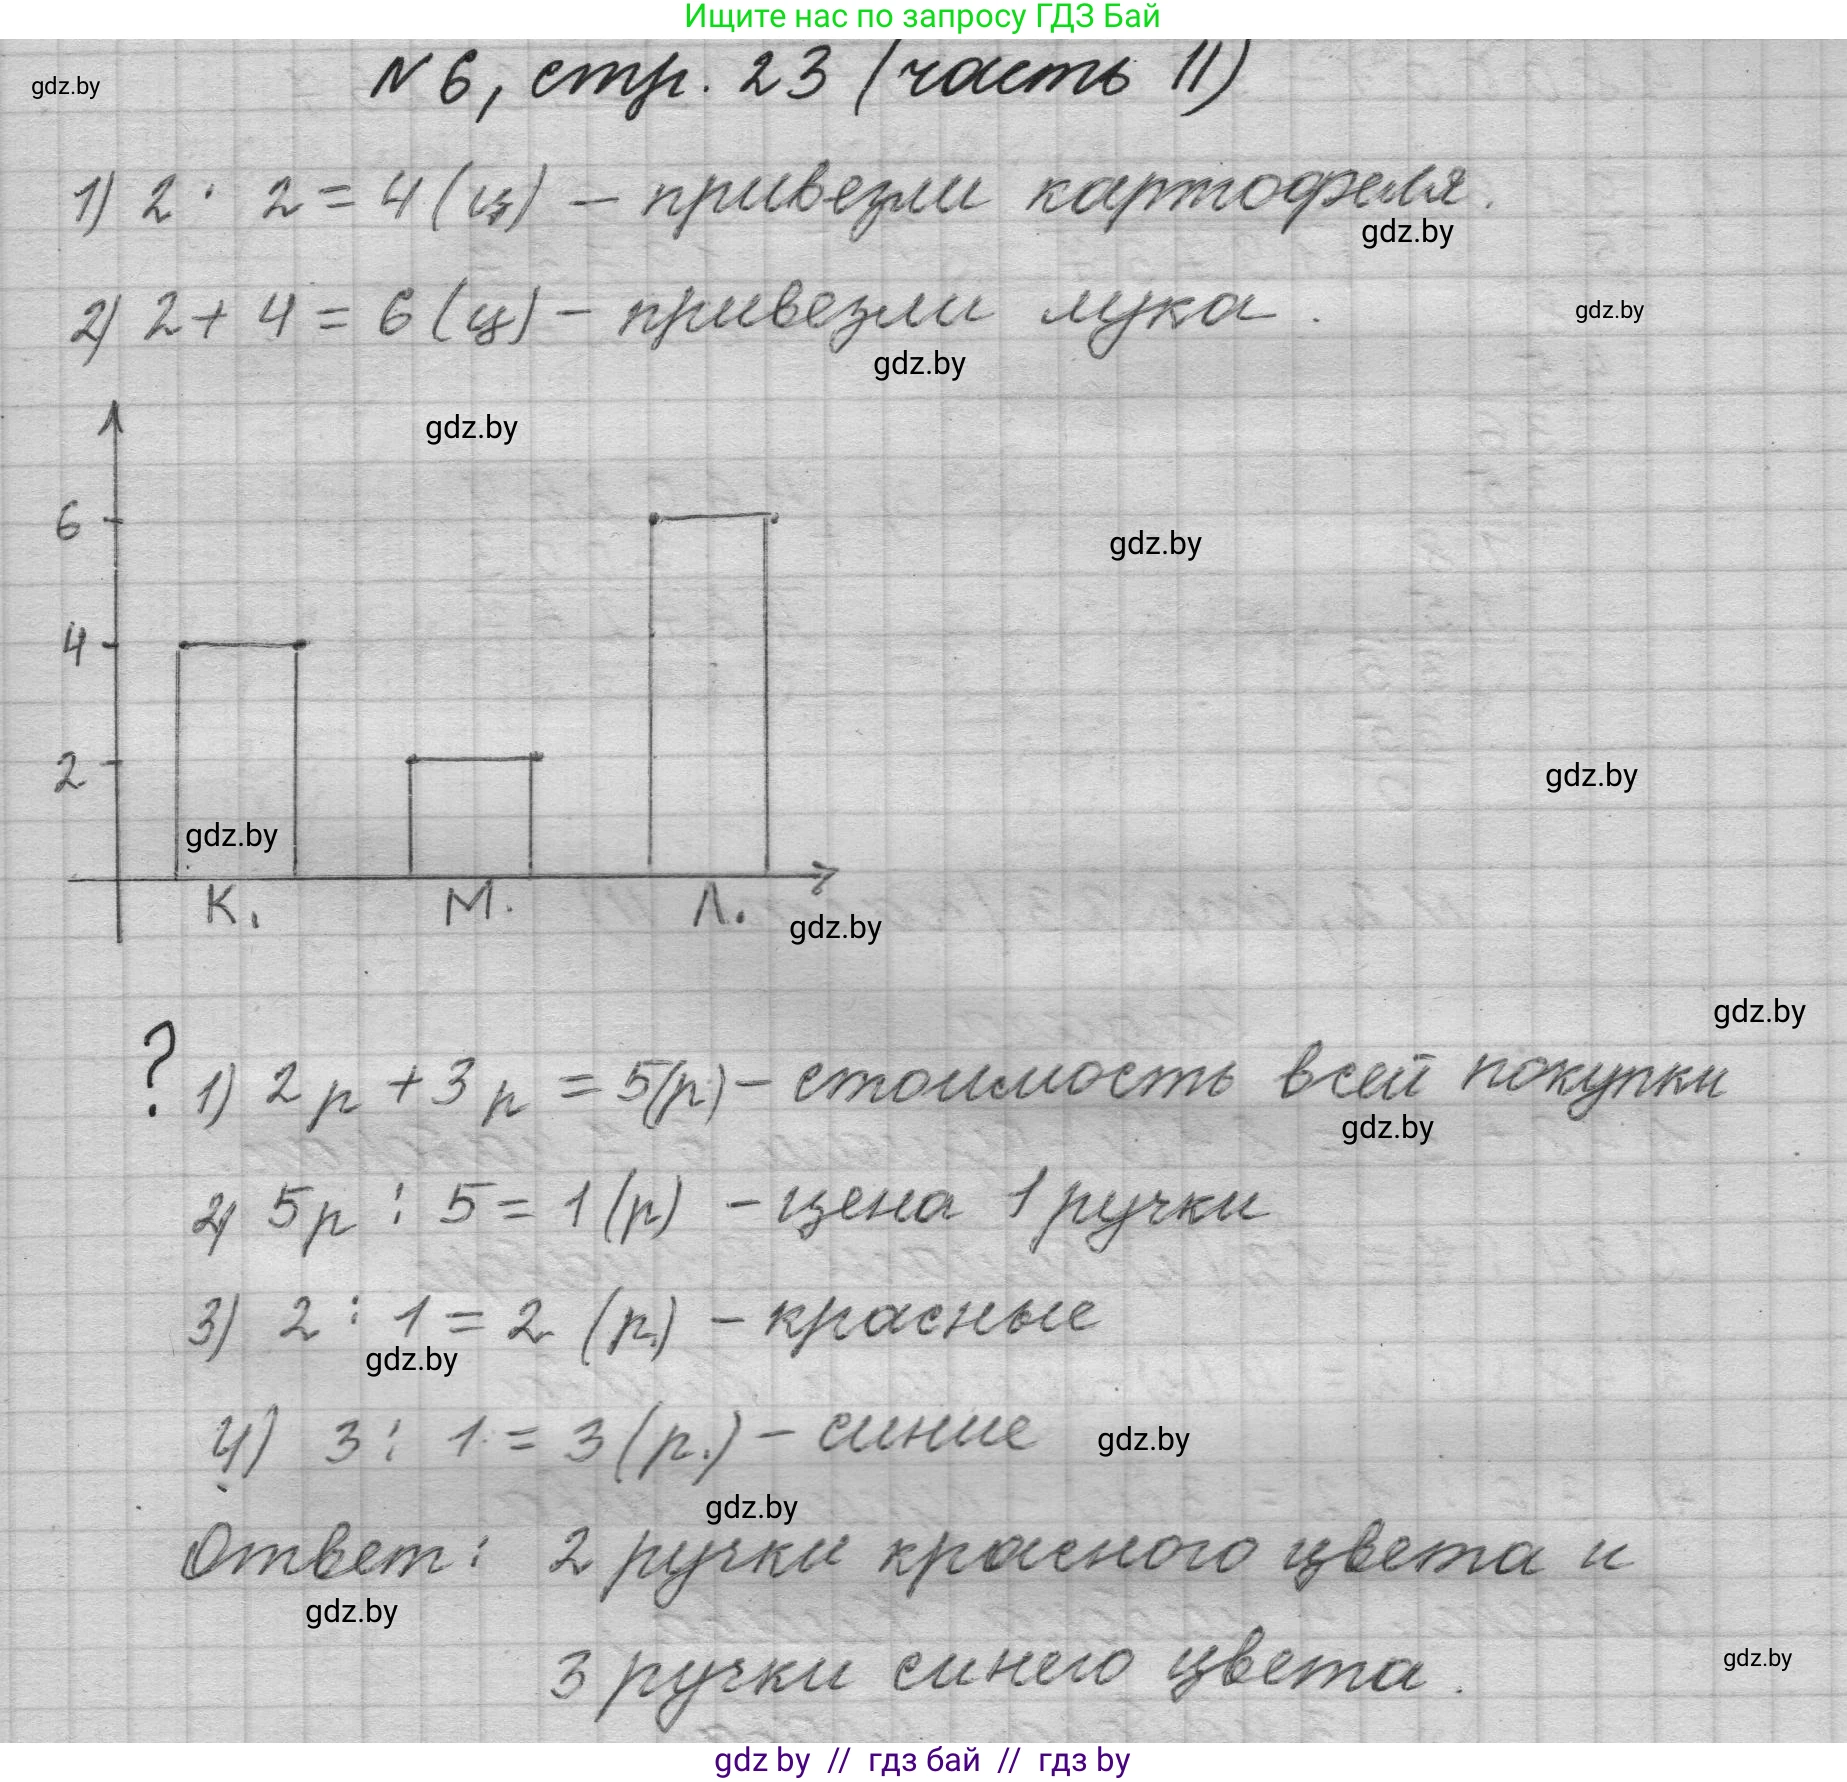 Ищите нас по запросу ГДЗ Бай
gdz.by
N 6, стр. 23 (часть II)
1) 2 · 2 = 4 (ц) – привезли картофеля.
gdz.by
2) 2 + 4 = 6 (ц) – привезли лука.
gdz.by
gdz.by
gdz.by
6
gdz.by
4
2
gdz.by
gdz.by
К. М. Л.
gdz.by
gdz.by
? 1) 2 р + 3 р = 5 (р) – стоимость всей покупки
gdz.by
2) 5 р : 5 = 1 (р) – цена 1 ручки
3) 2 : 1 = 2 (р.) – красные
gdz.by
4) 3 : 1 = 3 (р.) – синие
gdz.by
gdz.by
Ответ: 2 ручки красного цвета и
gdz.by
3 ручки синего цвета.
gdz.by
gdz by // гдз бай // гдз by